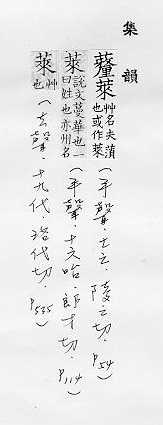 集韻
藜萊 艸名夫湏
也或作萊
（平聲．七之．陵之切．P54）
萊 說文蔓華也一
曰姓也亦州名
（平聲．十六咍．郎才切．P114）
萊 艸
也
（去聲．十九代．洛代切．P535）